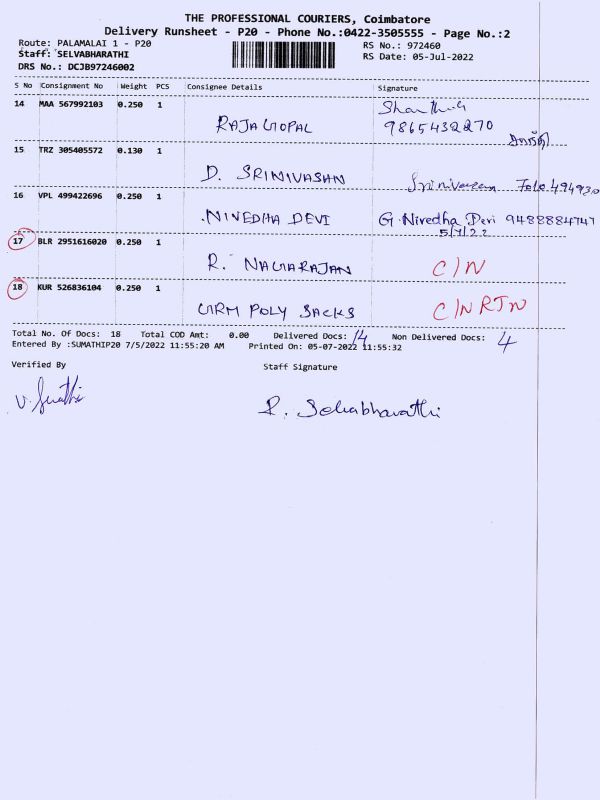 THE PROFESSIONAL COURIERS, Coimbatore
Delivery Runsheet - P20 - Phone No.:0422-3505555 - Page No.:2
Route: PALAMALAI 1 - P20
Staff: SELVABHARATHI
DRS No.: DCJB97246002
RS No.: 972460
RS Date: 05-Jul-2022
S No Consignment No Weight PCS Consignee Details Signature
14 MAA 567992103 0.250 1 RAJAGOPAL
9865432270
15 TRZ 305405572 0.130 1 D. SRINIVASAN Srinivasan
16 VPL 499422696 0.250 1 NIVEDHA DEVI G. Nivedha Devi 9488884747
5/7/22
17 BLR 2951616020 0.250 1 R. NAGARAJAN C/N
18 KUR 526836104 0.250 1 GRM POLY SACKS C/N RTN
Total No. Of Docs: 18 Total COD Amt: 0.00 Delivered Docs: 14 Non Delivered Docs: 4
Entered By :SUMATHIP20 7/5/2022 11:55:20 AM Printed On: 05-07-2022 11:55:32
Verified By Staff Signature